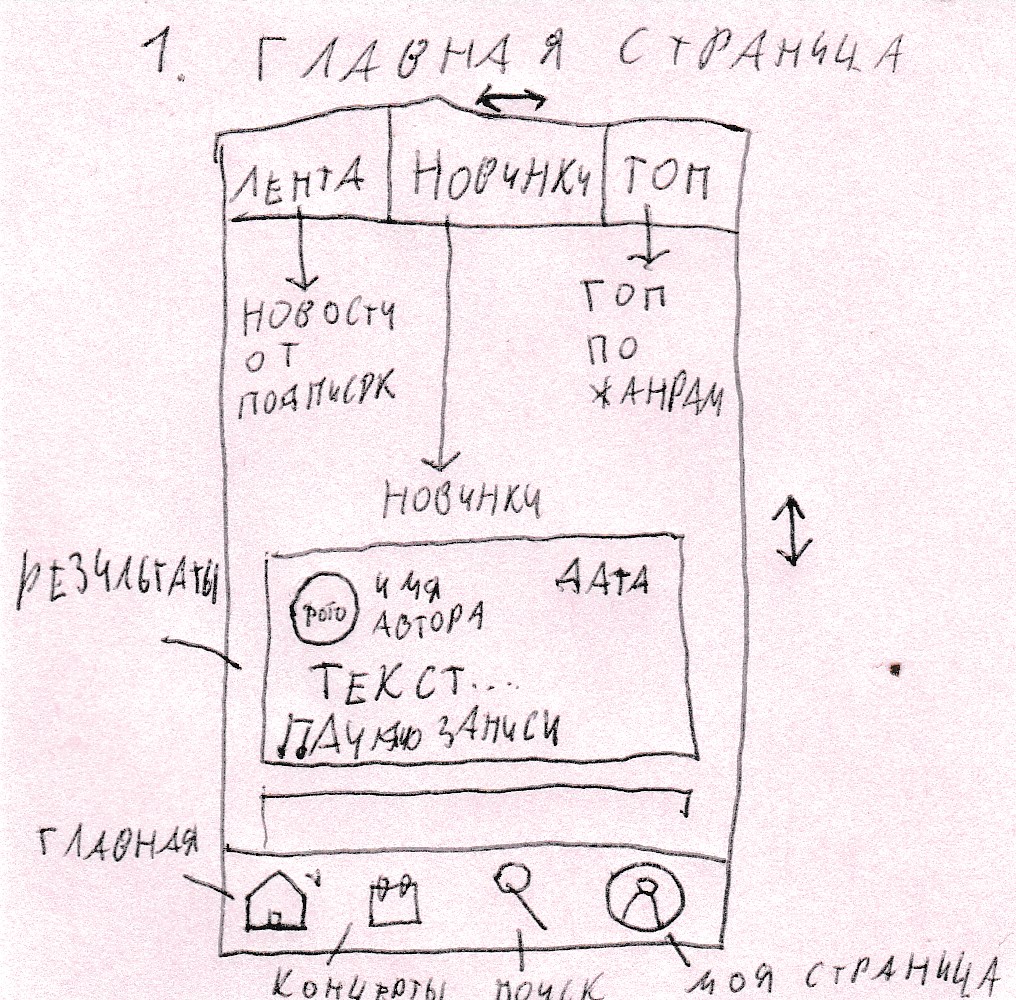 1. ГЛАВНАЯ СТРАНИЦА
ЛЕНТА НОВИНКИ ТОП
НОВОСТИ
ОТ
ПОДПИСОК
ТОП
ПО
ЖАНРАМ
НОВИНКИ
РЕЗУЛЬТАТЫ
ФОТО
ИМЯ
АВТОРА
ДАТА
ТЕКСТ...
ЗАПИСИ
ГЛАВНАЯ
КОНЦЕРТЫ ПОИСК МОЯ СТРАНИЦА